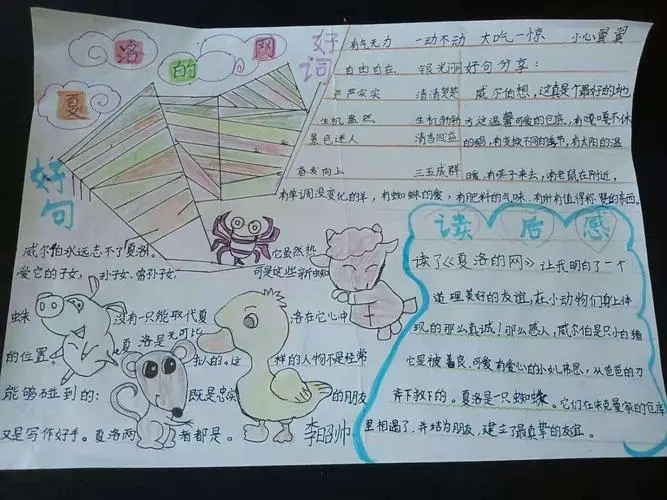 夏洛的网
好词
有气无力 一动不动 大吃一惊 小心翼翼
自由自在 银光丽
严严实实 清清楚楚
生机盎然 生机勃勃
景色迷人 清香四溢
奋发向上 三五成群
好句分享:
威尔伯想,这真是个最好的地
方这温馨可爱的仓底,有嘎嘎不休
的鹅,有变换不同的季节,有太阳的温
暖,有燕子来去,有老鼠在附近,
有单调没变化的羊,有蜘蛛的爱,有肥料的气味,有所有值得称赞的东西。
好句
威尔伯永远忘不了夏洛。它虽然热
爱它的子女,孙子女、曾孙子女,可是这些新蜘
蛛没有一只能取代夏洛在它心中
的位置。夏洛是无可比
拟的。这样的人物不是经常
能够碰到的:既是忠实的朋友
又是写作好手。夏洛两者都是。
李昭帅
读后感
读了《夏洛的网》让我明白了一个
道理美好的友谊,在小动物们身上体
现的那么真诚!那么感人,威尔伯是只小白猪
它是被善良、可爱有爱心的小女儿弗恩,从爸爸的刀
斧下救下的。夏洛是一只蜘蛛。它们在朱克曼家的仓库
里相遇了,并结为朋友,建立了最真挚的友谊。